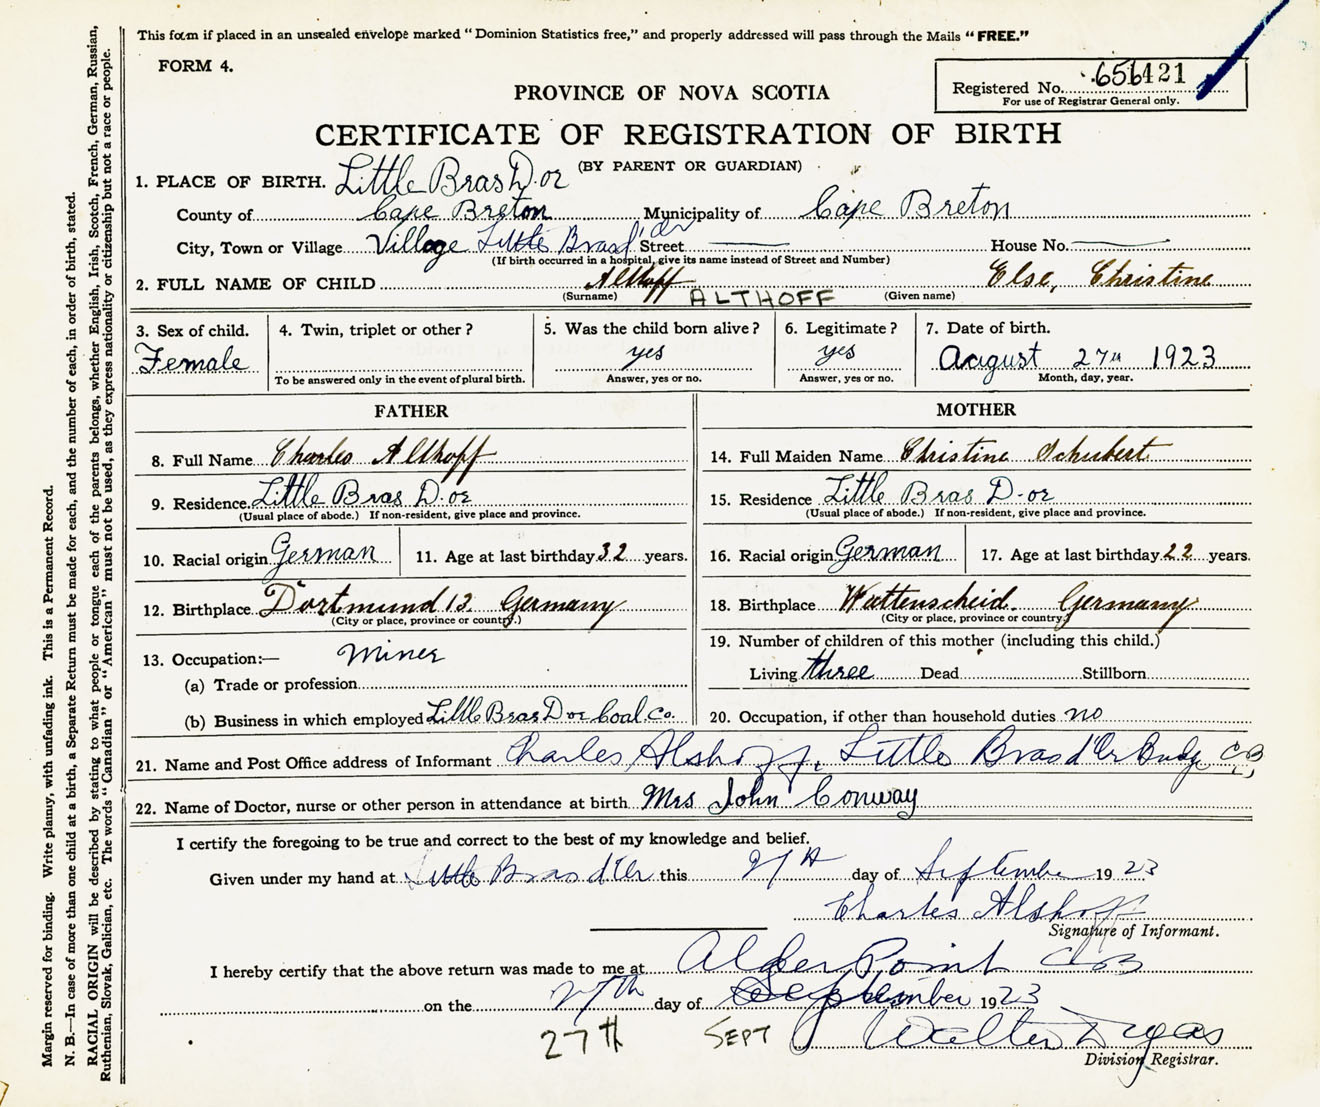 This form if placed in an unsealed envelope marked "Dominion Statistics free," and properly addressed will pass through the Mails "FREE."
FORM 4.
Registered No. 656421
For use of Registrar General only.
PROVINCE OF NOVA SCOTIA
CERTIFICATE OF REGISTRATION OF BIRTH
(BY PARENT OR GUARDIAN)
1. PLACE OF BIRTH. Little Bras D'or
County of Cape Breton Municipality of Cape Breton
City, Town or Village Village Little Bras d'or Street House No.
(If birth occurred in a hospital, give its name instead of Street and Number)
2. FULL NAME OF CHILD Althoff Else, Christine
(Surname) ALTHOFF (Given name)
3. Sex of child. Female
4. Twin, triplet or other?
To be answered only in the event of plural birth.
5. Was the child born alive? yes
Answer, yes or no.
6. Legitimate? yes
Answer, yes or no.
7. Date of birth. August 27th 1923
Month, day, year.
FATHER
8. Full Name Charles Althoff
9. Residence Little Bras D-or
(Usual place of abode.) If non-resident, give place and province.
10. Racial origin German 11. Age at last birthday 32 years.
12. Birthplace Dortmund 13. Germany
(City or place, province or country.)
13. Occupation:— Miner
(a) Trade or profession
(b) Business in which employed Little Bras D or Coal Co.
MOTHER
14. Full Maiden Name Christine Schubert
15. Residence Little Bras D-or
(Usual place of abode.) If non-resident, give place and province.
16. Racial origin German 17. Age at last birthday 22 years.
18. Birthplace Wattenscheid. Germany
(City or place, province or country.)
19. Number of children of this mother (including this child.)
Living three Dead Stillborn
20. Occupation, if other than household duties no
21. Name and Post Office address of Informant Charles Alshoff, Little Bras d'Or C.B.
22. Name of Doctor, nurse or other person in attendance at birth Mrs John Conway
I certify the foregoing to be true and correct to the best of my knowledge and belief.
Given under my hand at Little Bras d'Or this day of September 1923
Charles Alshoff
Signature of Informant.
I hereby certify that the above return was made to me at Alder Point C B
on the 27th day of September 1923
27th SEPT Walter
Division Registrar.
Margin reserved for binding. Write plainly, with unfading ink. This is a Permanent Record.
N. B.—In case of more than one child at a birth, a Separate Return must be made for each, and the number of each, in order of birth, stated.
RACIAL ORIGIN will be described by stating to what people or tongue each of the parents belongs, whether English, Irish, Scotch, French, German, Russian,
Ruthenian, Slovak, Galician, etc. The words "Canadian" or "American" must not be used, as they express nationality or citizenship but not a race or people.